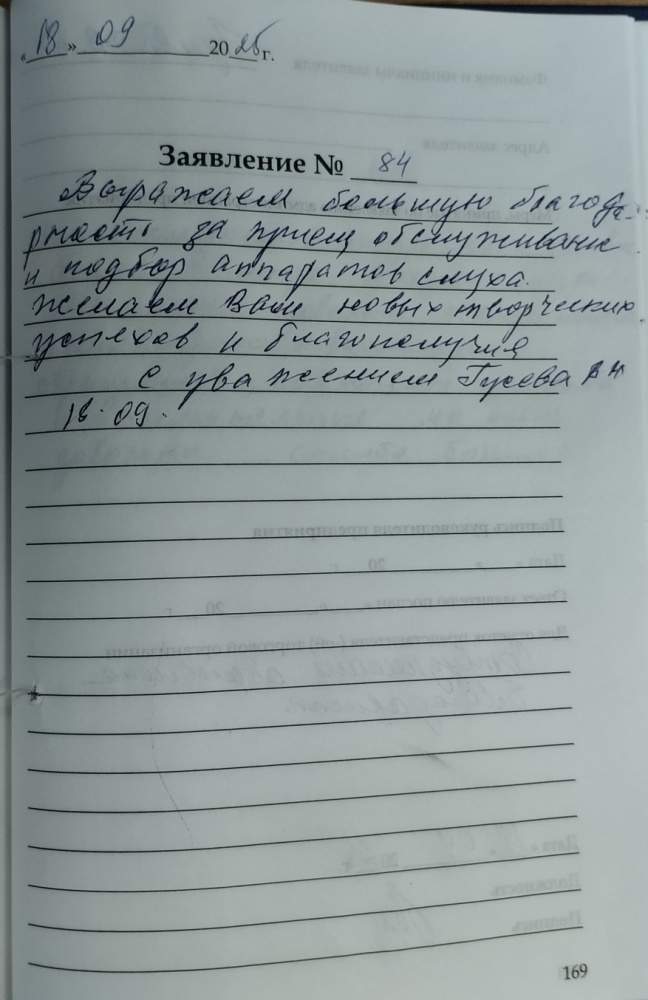 «18» 09 2025 г.
Заявление № 84
Выражаем большую благода-
рность за прием, обслуживание
и подбор аппаратов слуха.
желаем Вам новых творческих
успехов и благополучия
С уважением Гусева
18.09.
169